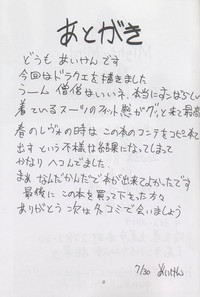 あとがき
どうも あいけんです
今回はドラクエを描きました
うーん 僧侶はいいネ、本当にすばらしい
着ているスーツのフィット感がグッと来て最高
春のレヴォの時は この本のコンテをコピー本で
出す という不様は結果になってしまって
かなりヘコんでました
まぁ なんだかんだで本が出来てよかったです
最後に この本を買って下さった方々
ありがとう 次は冬コミで会いましょう
7/30 あいけん